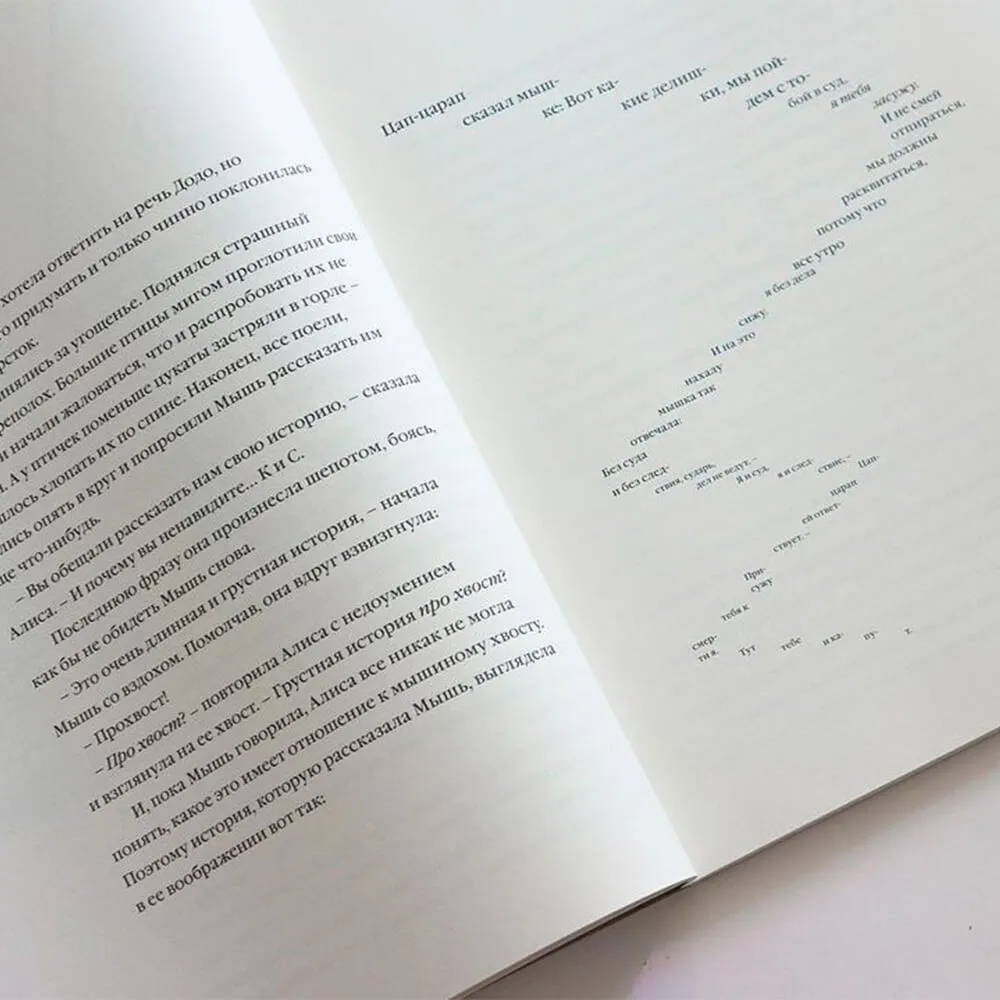 хотела ответить на речь Додо, но
придумать и только чинно поклонилась
за угощенье. Поднялся страшный
Большие птицы мигом проглотили свои
и начали жаловаться, что и распробовать их не
А у птичек поменьше цукаты застряли в горле –
хлопать их по спине. Наконец, все поели,
опять в круг и попросили Мышь рассказать им
что-нибудь.
– Вы обещали рассказать нам свою историю, – сказала
Алиса. – И почему вы ненавидите... К и С.
Последнюю фразу она произнесла шепотом, боясь,
как бы не обидеть Мышь снова.
– Это очень длинная и грустная история, – начала
Мышь со вздохом. Помолчав, она вдруг взвизгнула:
– Прохвост!
– Про хвост? – повторила Алиса с недоумением
и взглянула на ее хвост. – Грустная история про хвост?
И, пока Мышь говорила, Алиса все никак не могла
понять, какое это имеет отношение к мышиному хвосту.
Поэтому история, которую рассказала Мышь, выглядела
в ее воображении вот так:
Цап-царап
сказал мыш-
ке: Вот ка-
кие делиш-
ки, мы пой-
дем с то-
бой в суд,
я тебя
засужу.
И не смей
отпираться,
мы должны
расквитаться,
потому что
все утро
я без дела
сижу.
И на это
нахалу
мышка так
отвечала:
Без суда
и без след-
ствия, сударь,
дел не ведут. –
Я и суд,
я и след-
ствие, –
Цап-
царап
ей ответ-
ствует. –
При-
сужу
тебя к
смер-
ти я.
Тут
тебе
и ка-
пу-
т.